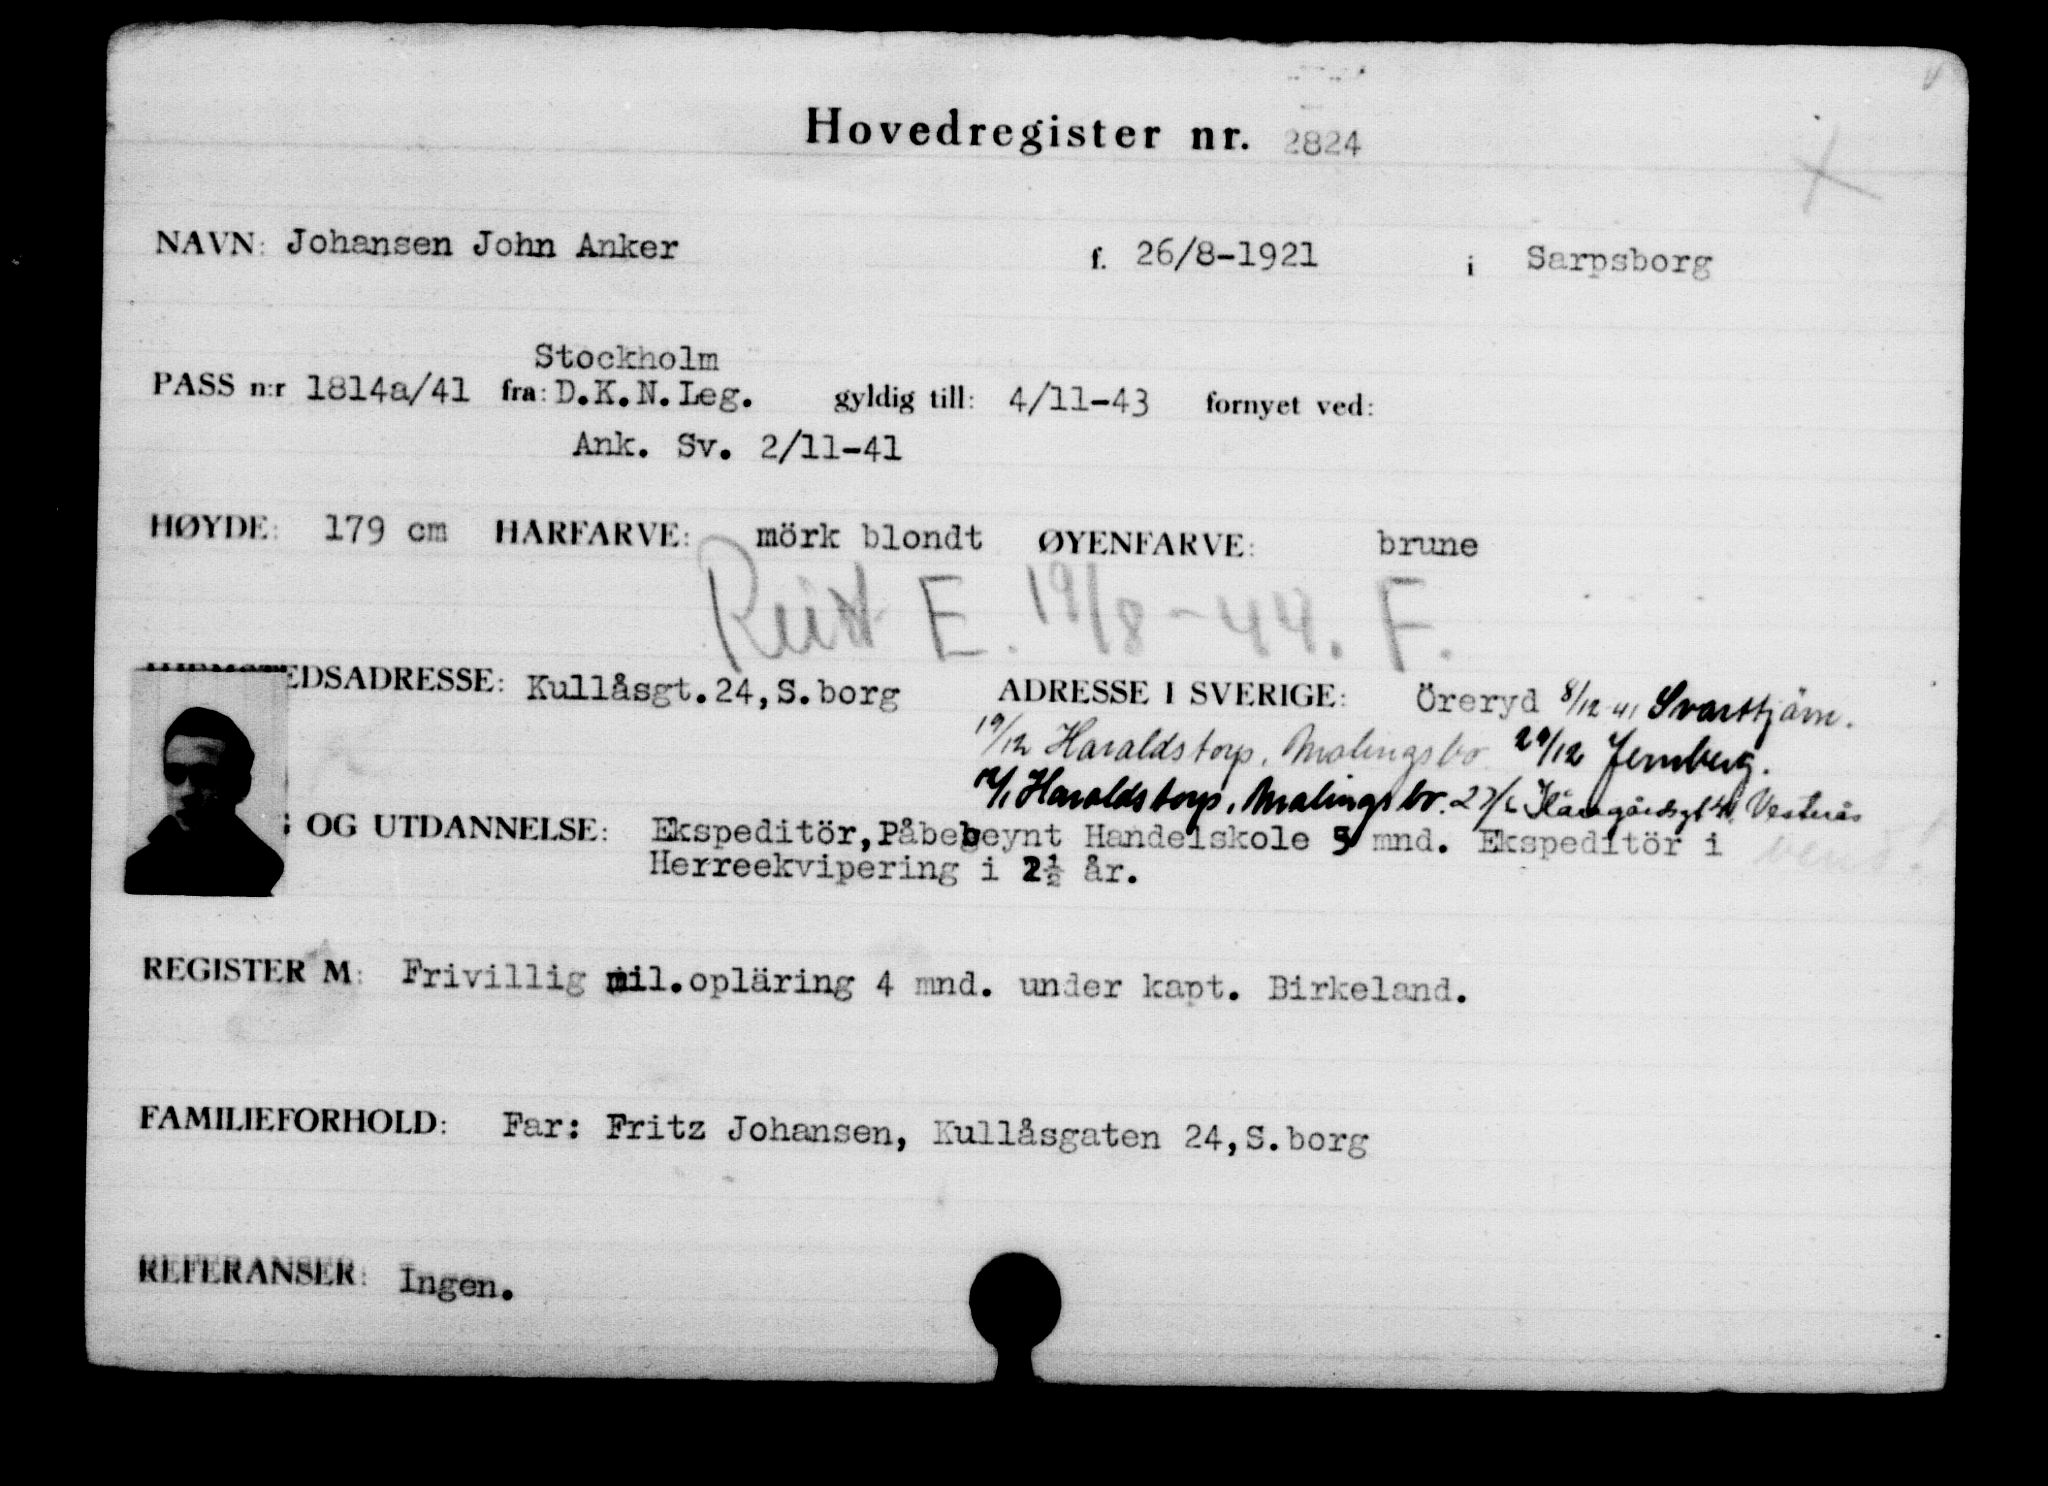 Hovedregister nr. 2824
NAVN: Johansen John Anker f. 26/8-1921 i Sarpsborg
Stockholm
PASS n:r 1814a/41 fra: D.K.N.Leg. gyldig till: 4/11-43 fornyet ved:
Ank. Sv. 2/11-41
HØYDE: 179 cm HÅRFARVE: mörk blondt ØYENFARVE: brune
Reist E. 19/8-44. F.
EDSADRESSE: Kullåsgt.24,S.borg ADRESSE I SVERIGE: Öreryd 8/12-41 Svarttjärn.
19/12 Haraldstorp, Malingsbo 29/12 Jernberg.
12/1 Haraldstorp, Malingsbo. 27/6 Vesterås
G OG UTDANNELSE: Ekspeditör, Handelskole 5 mnd. Ekspeditör i
Herreekvipering i 2½ år.
REGISTER M: Frivillig mil.opläring 4 mnd. under kapt. Birkeland.
FAMILIEFORHOLD: Far: Fritz Johansen, Kullåsgaten 24,S.borg
REFERANSER: Ingen.